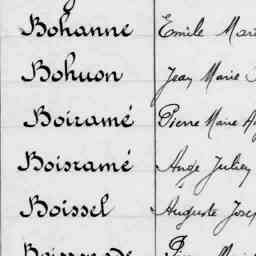 Bohanne Emile Mari
Bohuon Jean Marie
Boiramé Pierre Marie
Boisramé Ange Julien
Boissel Auguste Jose